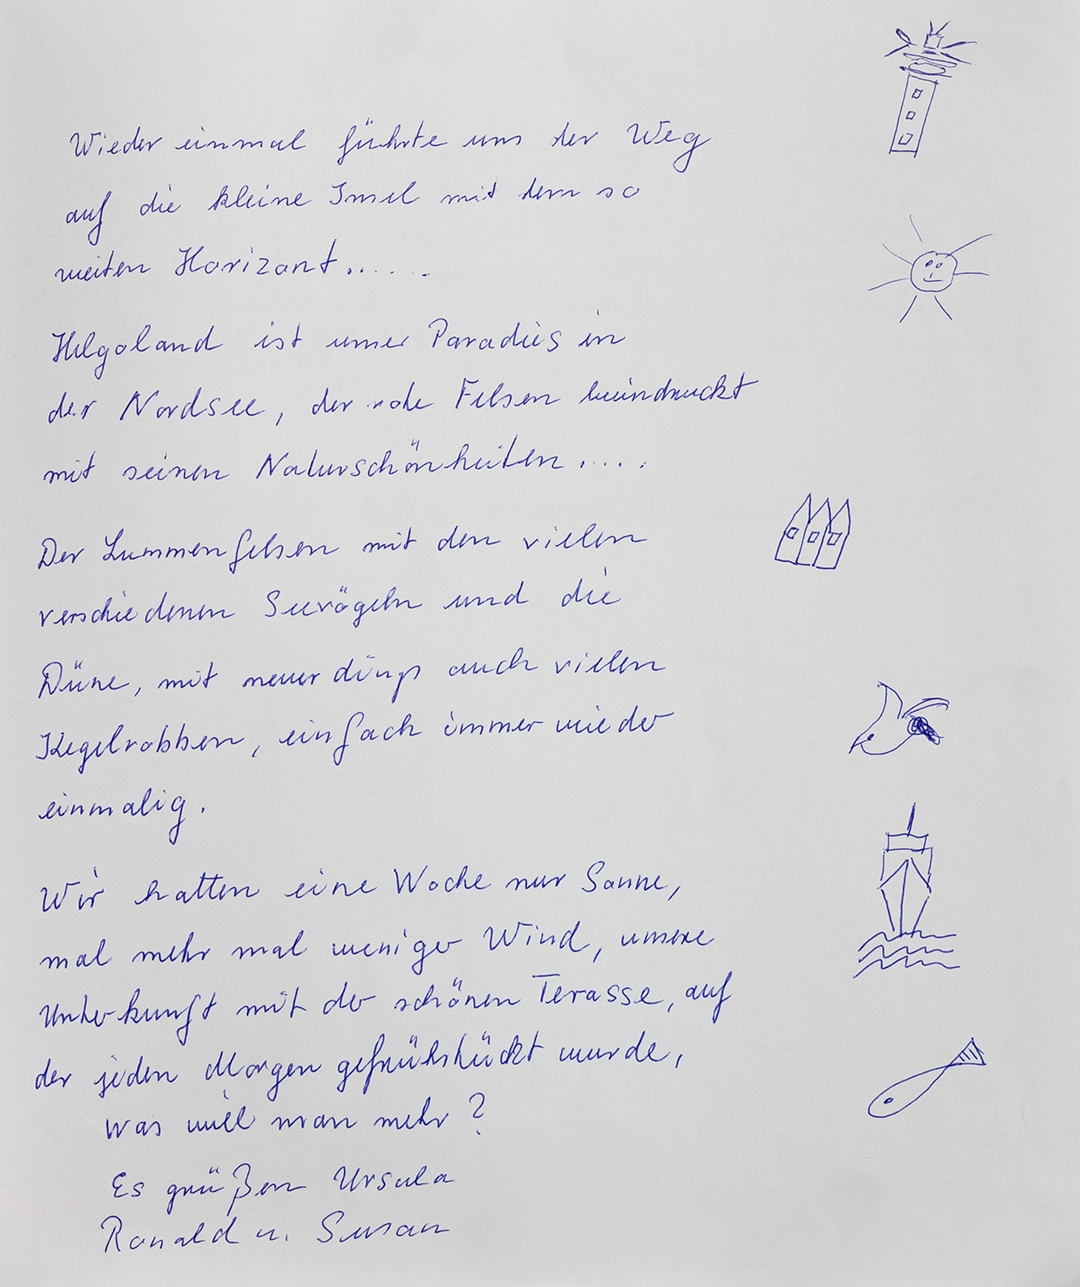 Wieder einmal führte uns der Weg
auf die kleine Insel mit dem so
weiten Horizont......
Helgoland ist unser Paradies in
der Nordsee, der rote Felsen beeindruckt
mit seinen Naturschönheiten.....
Der Lummenfelsen mit den vielen
verschiedenen Seevögeln und die
Düne, mit neuerdings auch vielen
Kegelrobben, einfach immer wieder
einmalig.
Wir hatten eine Woche nur Sonne,
mal mehr mal weniger Wind, unsere
Unterkunft mit der schönen Terasse, auf
der jeden Morgen gefrühstückt wurde,
was will man mehr?
Es grüßen Ursula
Ronald u. Susan